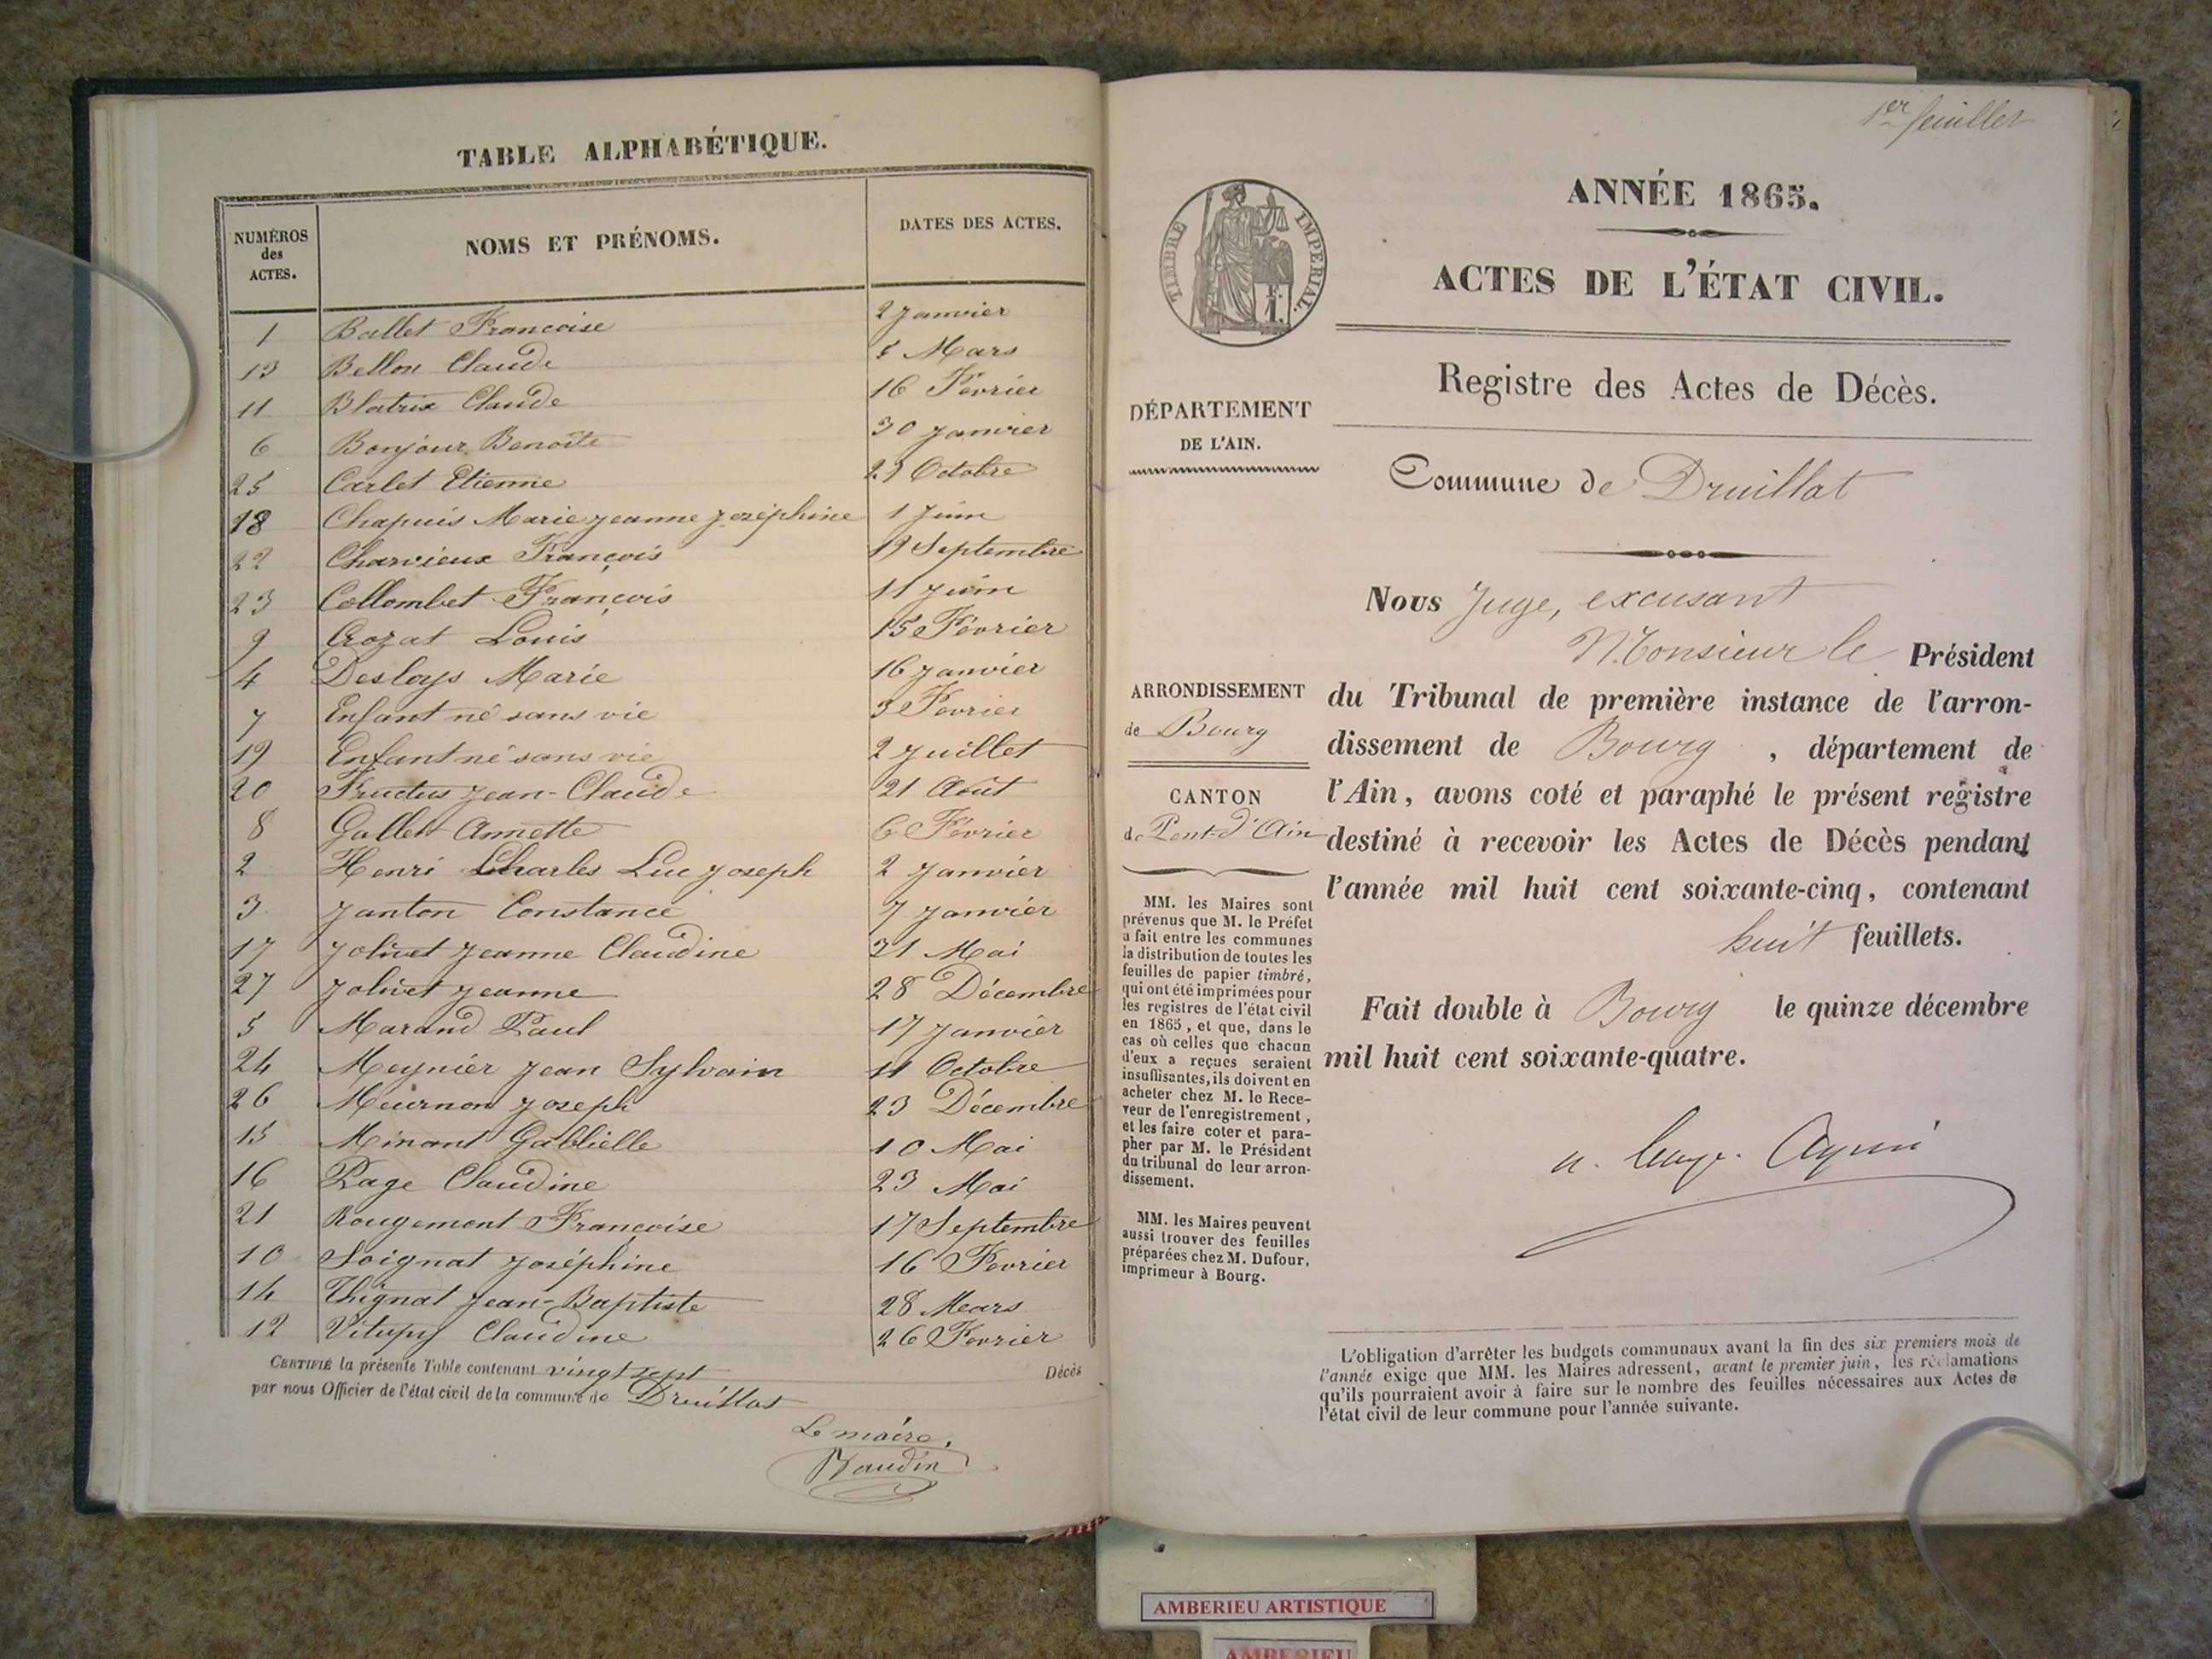 TABLE ALPHABÉTIQUE.
NUMÉROS des ACTES. NOMS ET PRÉNOMS. DATES DES ACTES.
1 Ballet Francoise 2 Janvier
13 Bellon Claude 5 Mars
11 Blatrix Claude 16 Février
6 Bonjour Benoîte 30 Janvier
25 Carlet Etienne 23 Octobre
18 Chapuis Marie Jeanne Joséphine 1 Juin
22 Charvieux François 19 Septembre
23 Collombet François 11 Juin
9 Crozat Louis 15 Février
4 Desloys Marie 16 Janvier
7 Enfant né sans vie 3 Fevrier
19 Enfant né sans vie 2 Juillet
20 Fructus Jean-Claude 21 Août
8 Gallet Annette 6 Février
2 Henri Charles Luc Joseph 2 Janvier
3 Janton Constance 7 Janvier
17 Jolivet Jeanne Claudine 31 Mai
27 Jolivet Jeanne 28 Décembre
5 Marand Paul 17 Janvier
24 Meynier Jean Sylvain 11 Octobre
26 Meurnon Joseph 23 Décembre
15 Minant 10 Mai
16 Page Claudine 23 Mai
21 Rougemont Françoise 17 Septembre
10 Soignat Joséphine 16 Fevrier
14 Thignat Jean-Baptiste 28 Mars
12 Vitupy Claudine 26 Fevrier
CERTIFIÉ la présente Table contenant vingt sept Décès
par nous Officier de l'état civil de la commune de Druillat
Le maire,
1er feuillet
TIMBRE IMPÉRIAL.
ANNÉE 1865.
ACTES DE L'ÉTAT CIVIL.
Registre des Actes de Décès.
DÉPARTEMENT
DE L'AIN.
Commune de Druillat
Nous Juge, excusant
Monsieur le Président
du Tribunal de première instance de l'arron-
dissement de Bourg, département de
l'Ain, avons coté et paraphé le présent registre
destiné à recevoir les Actes de Décès pendant
l'année mil huit cent soixante-cinq, contenant
huit feuillets.
Fait double à Bourg le quinze décembre
mil huit cent soixante-quatre.
ARRONDISSEMENT
de Bourg
CANTON
de Pont-d'Ain
MM. les Maires sont
prévenus que M. le Préfet
a fait entre les communes
la distribution de toutes les
feuilles de papier timbré,
qui ont été imprimées pour
les registres de l'état civil
en 1865, et que, dans le
cas où celles que chacun
d'eux a reçues seraient
insuffisantes, ils doivent en
acheter chez M. le Rece-
veur de l'enregistrement,
et les faire coter et para-
pher par M. le Président
du tribunal de leur arron-
dissement.
MM. les Maires peuvent
aussi trouver des feuilles
préparées chez M. Dufour,
imprimeur à Bourg.
L'obligation d'arrêter les budgets communaux avant la fin des six premiers mois de
l'année exige que MM. les Maires adressent, avant le premier juin, les réclamations
qu'ils pourraient avoir à faire sur le nombre des feuilles nécessaires aux Actes de
l'état civil de leur commune pour l'année suivante.
AMBERIEU ARTISTIQUE
AMBERIEU